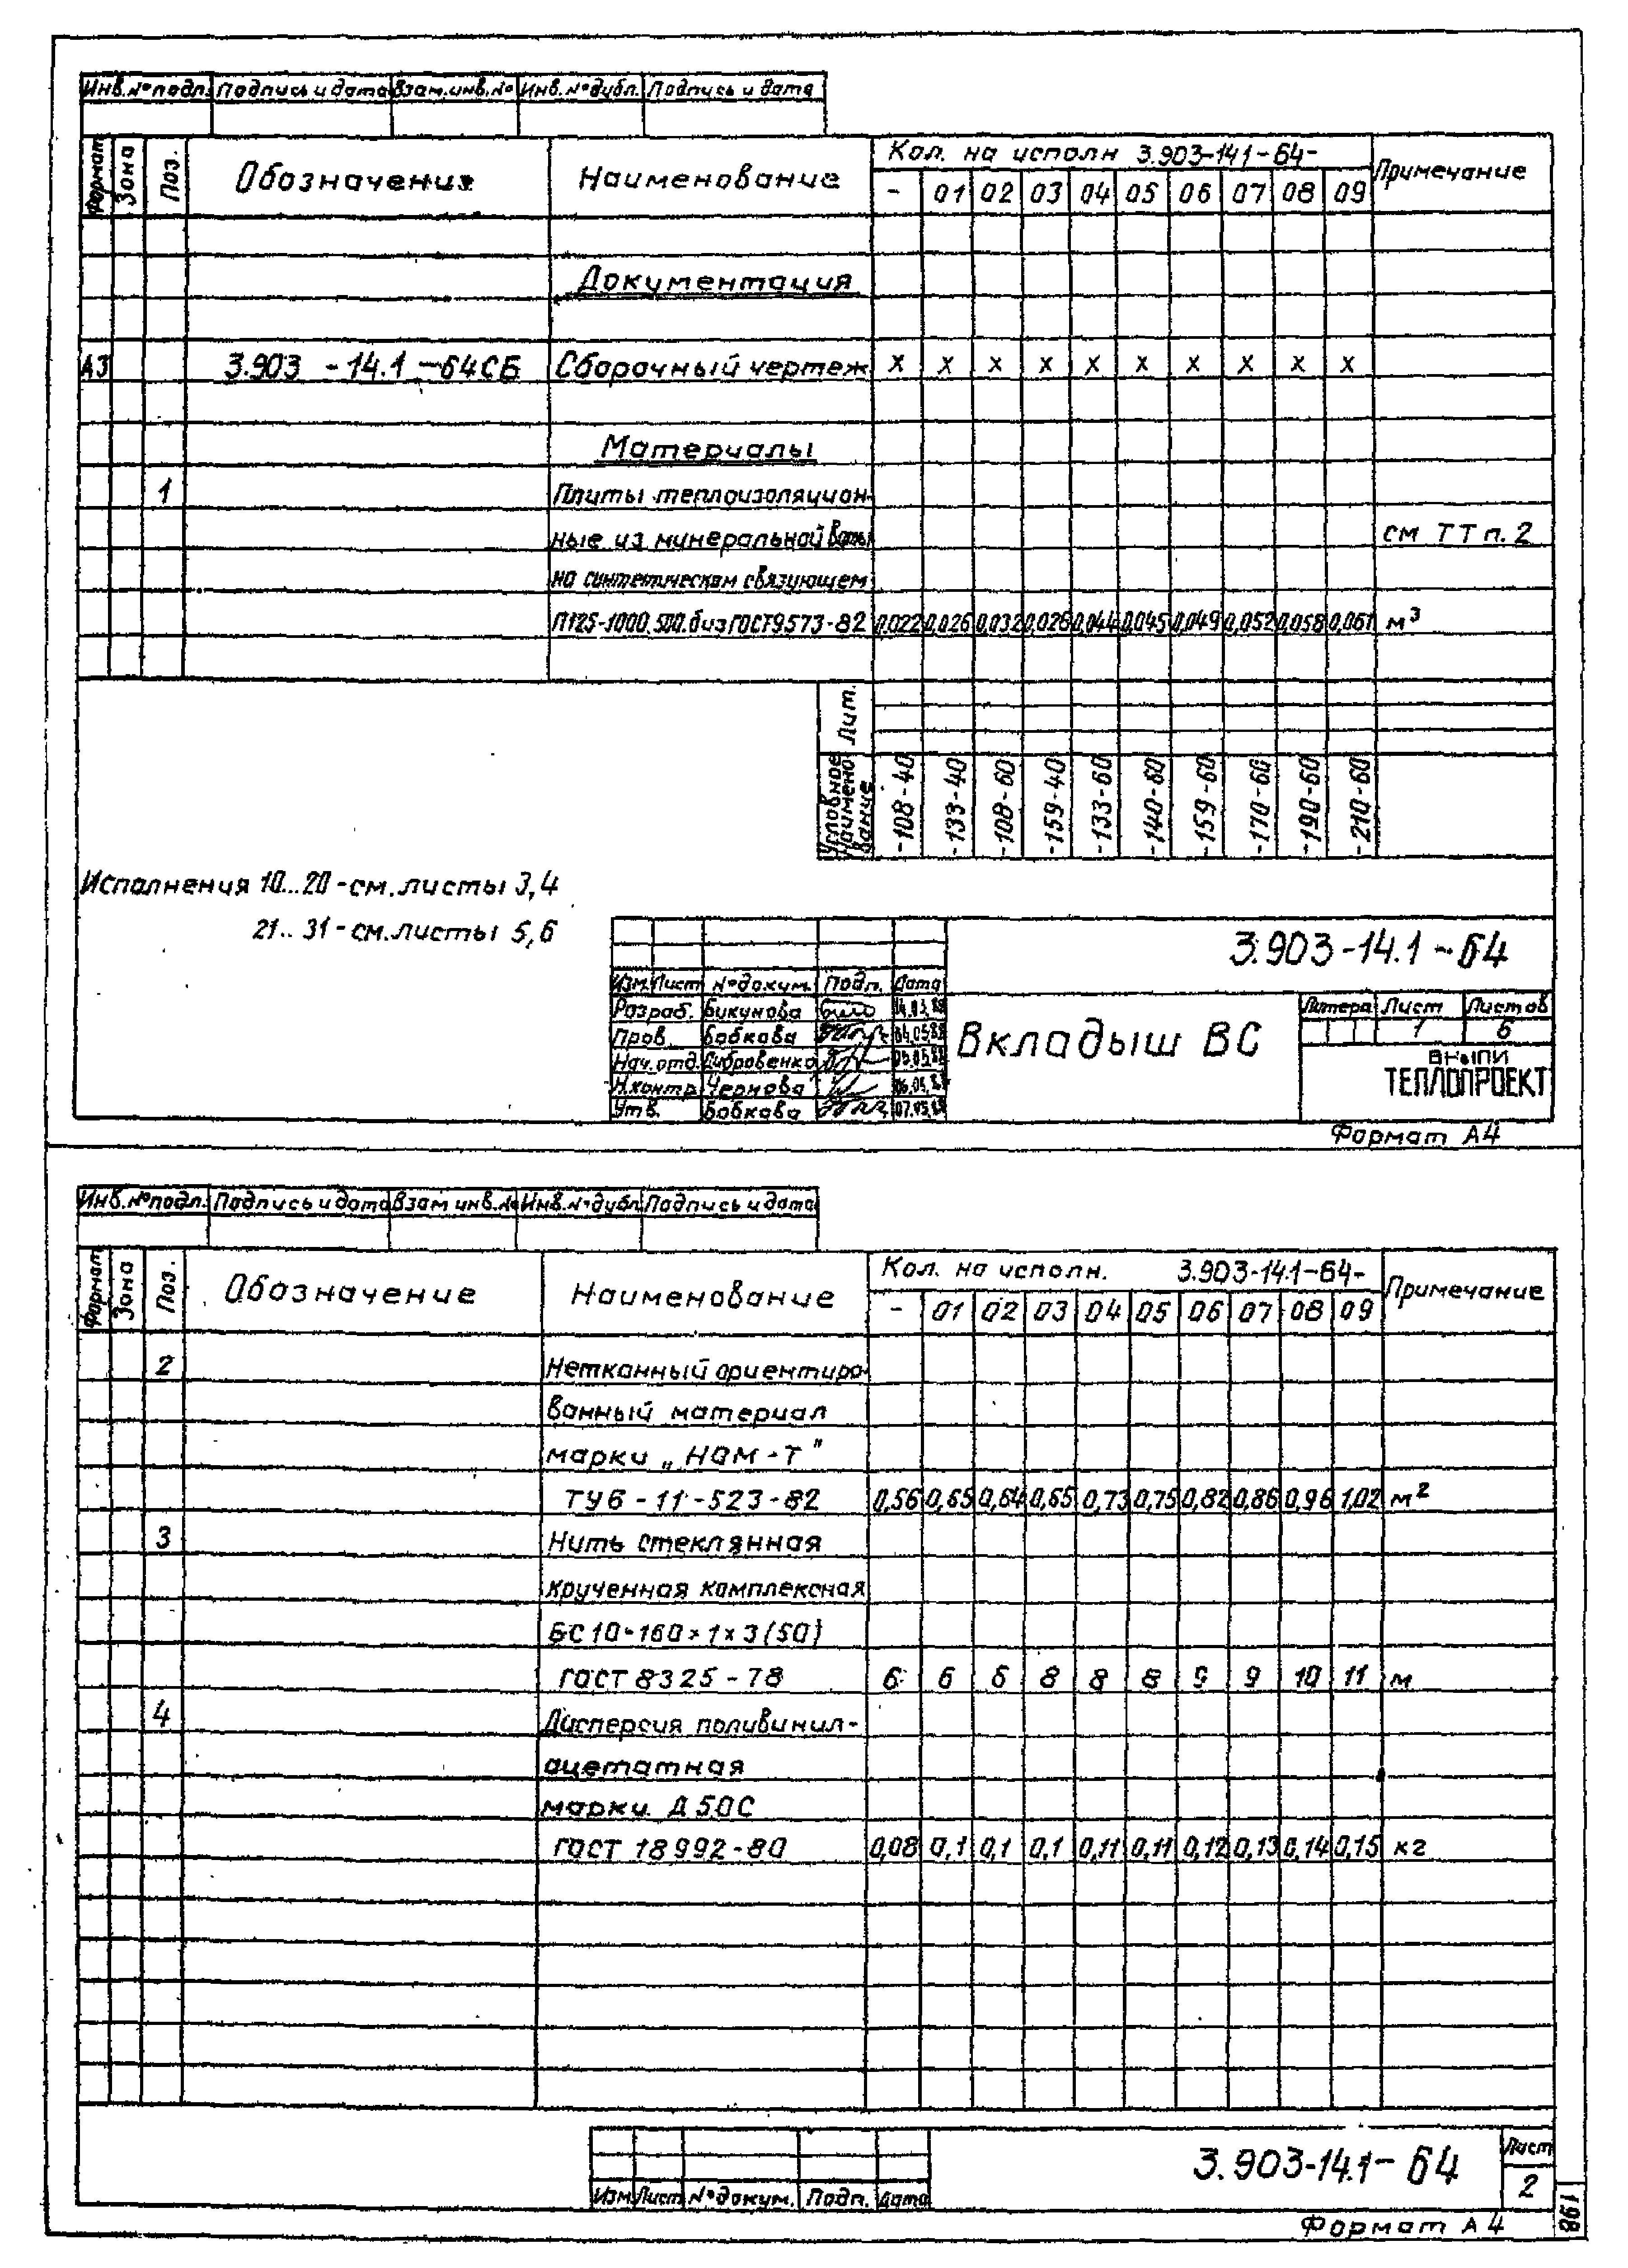 Инв.№подл. Подпись и дата Взам.инв.№ Инв.№дубл. Подпись и дата
Формат Зона Поз. Обозначение Наименование Кол. на исполн 3.903-14.1-64- Примечание
- 01 02 03 04 05 06 07 08 09
Документация
А3 3.903 -14.1-64СБ Сборочный чертеж х х х х х х х х х х
Материалы
1 Плиты теплоизоляцион-
ные из минеральной ваты см ТТ п.2
на синтетическом связующем
П125-1000.500.биз ГОСТ9573-82 0,022 0,026 0,032 0,026 0,044 0,045 0,049 0,052 0,058 0,061 м³
Лит.
Условное наименование -108-40 -133-40 -108-60 -159-40 -133-60 -140-60 -159-60 -170-60 -190-60 -210-60
Исполнения 10...20 -см.листы 3,4
21.. 31 - см.листы 5,6
3.903-14.1-64
Изм. Лист №докум. Подп. Дата
Разраб. Бикунова
Пров. Бобкова
Нач.отд.
Н.контр. Чернова
Утв. Бобкова
Вкладыш ВС
Литера Лист Листов
1 6
ВНИПИ
ТЕПЛОПРОЕКТ
Формат А4
Инв.№подл. Подпись и дата Взам инв.№ Инв.№дубл Подпись и дата
Формат Зона Поз. Обозначение Наименование Кол. на исполн. 3.903-14.1-64- Примечание
- 01 02 03 04 05 06 07 08 09
2 Нетканный ориентиро-
ванный материал
марки „НОМ-Т"
ТУ6-11-523-82 0,56 0,65 0,64 0,65 0,73 0,75 0,82 0,86 0,96 1,02 м²
3 Нить стеклянная
крученная комплексная
БС10-160×1×3(50)
ГОСТ 8325-78 6 6 6 8 8 8 9 9 10 11 м
4 Дисперсия поливинил-
ацетатная
марки Д 50С
ГОСТ 18992-80 0,08 0,1 0,1 0,1 0,11 0,11 0,12 0,13 0,14 0,15 кг
3.903-14.1-64
Лист
2
Изм. Лист №докум. Подп. Дата
Формат А4
198